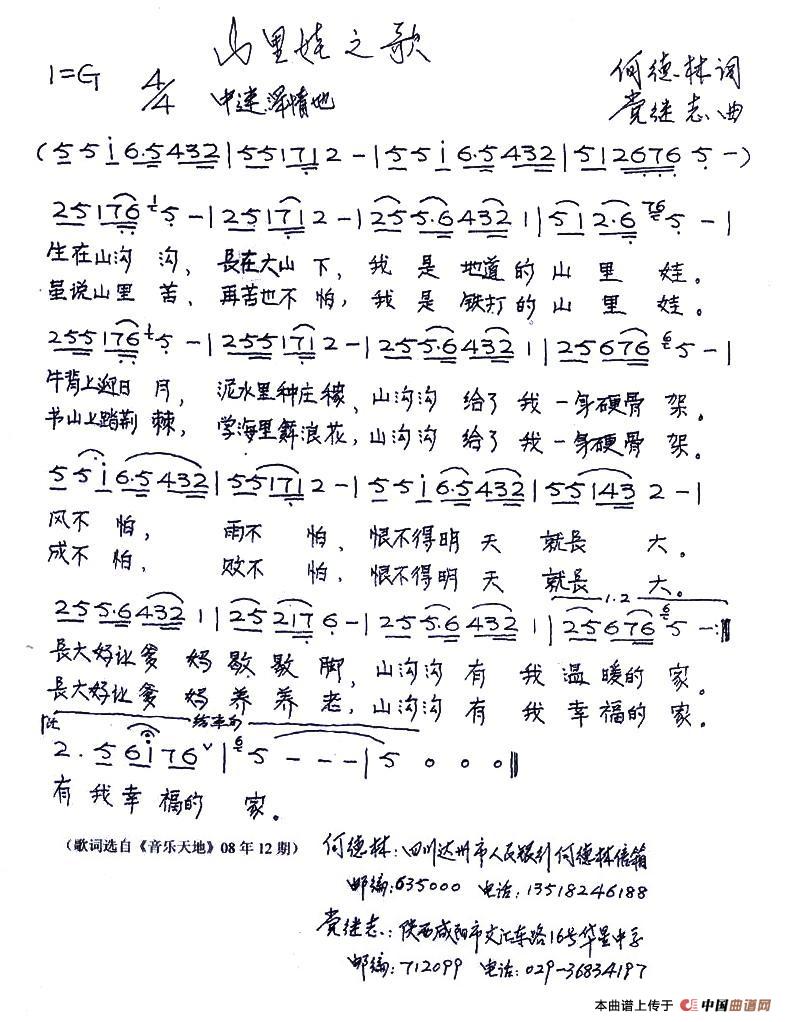 山里娃之歌
1=G 4/4 中速 深情地
何德林词
党继志曲
(5 5 i 6·5432|551712-|55i6·5432|5126765-)
25176 5-|2517 12-|255·64321|512·6 76 5-|
生在山沟 沟，長在大山 下，我 是 地道的 山 里 娃。
虽说山里 苦，再苦也不 怕，我 是 铁打的 山 里 娃。
255176 5-|2551712-|255·64321|25676 6 5-|
牛背上迎日 月，泥水里种庄稼，山沟沟 给了 我 一身硬骨 架。
书山上踏荆 棘，学海里舞浪花，山沟沟 给了 我 一身硬骨 架。
55i6·5432|551712-|55i6·5432|551432-|
风不 怕，雨不 怕，恨不得明 天 就長 大。
成不 怕，败不 怕，恨不得明 天 就長 大。
1.2
255·64321|252176-|255·64321|25676 6 5-:‖
長大好让爹 妈 歇 歇 脚，山沟沟 有 我 温 暖的 家。
長大好让爹 妈 养 养 老，山沟沟 有 我 幸 福的 家。
结束句
2·56i76ˇ|6 5---|5000‖
有 我 幸 福的 家。
(歌词选自《音乐天地》08年12期)
何德林：四川达州市人民银行何德林信箱
邮编：635000 电话：13518246188
党继志：陕西咸阳市文汇东路16号华星中系
邮编：712099 电话：029-36834197
本曲谱上传于 中国曲谱网